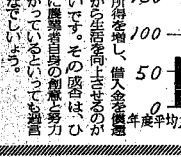 所得を増し、借入金を償還
から生活を向上させるのが
いです。その成否は、ひ
に農業者自身の創意と努力
かっているといっても過言
ないでしょう。
100
50
0
年度平均